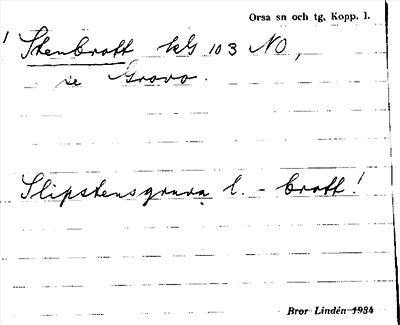 Orsa sn och tg, Kopp. l.
! Stenbrott kG 103 NO,
se Grovo.
Slipstensgruva l. - brott!
Bror Lindén 1934